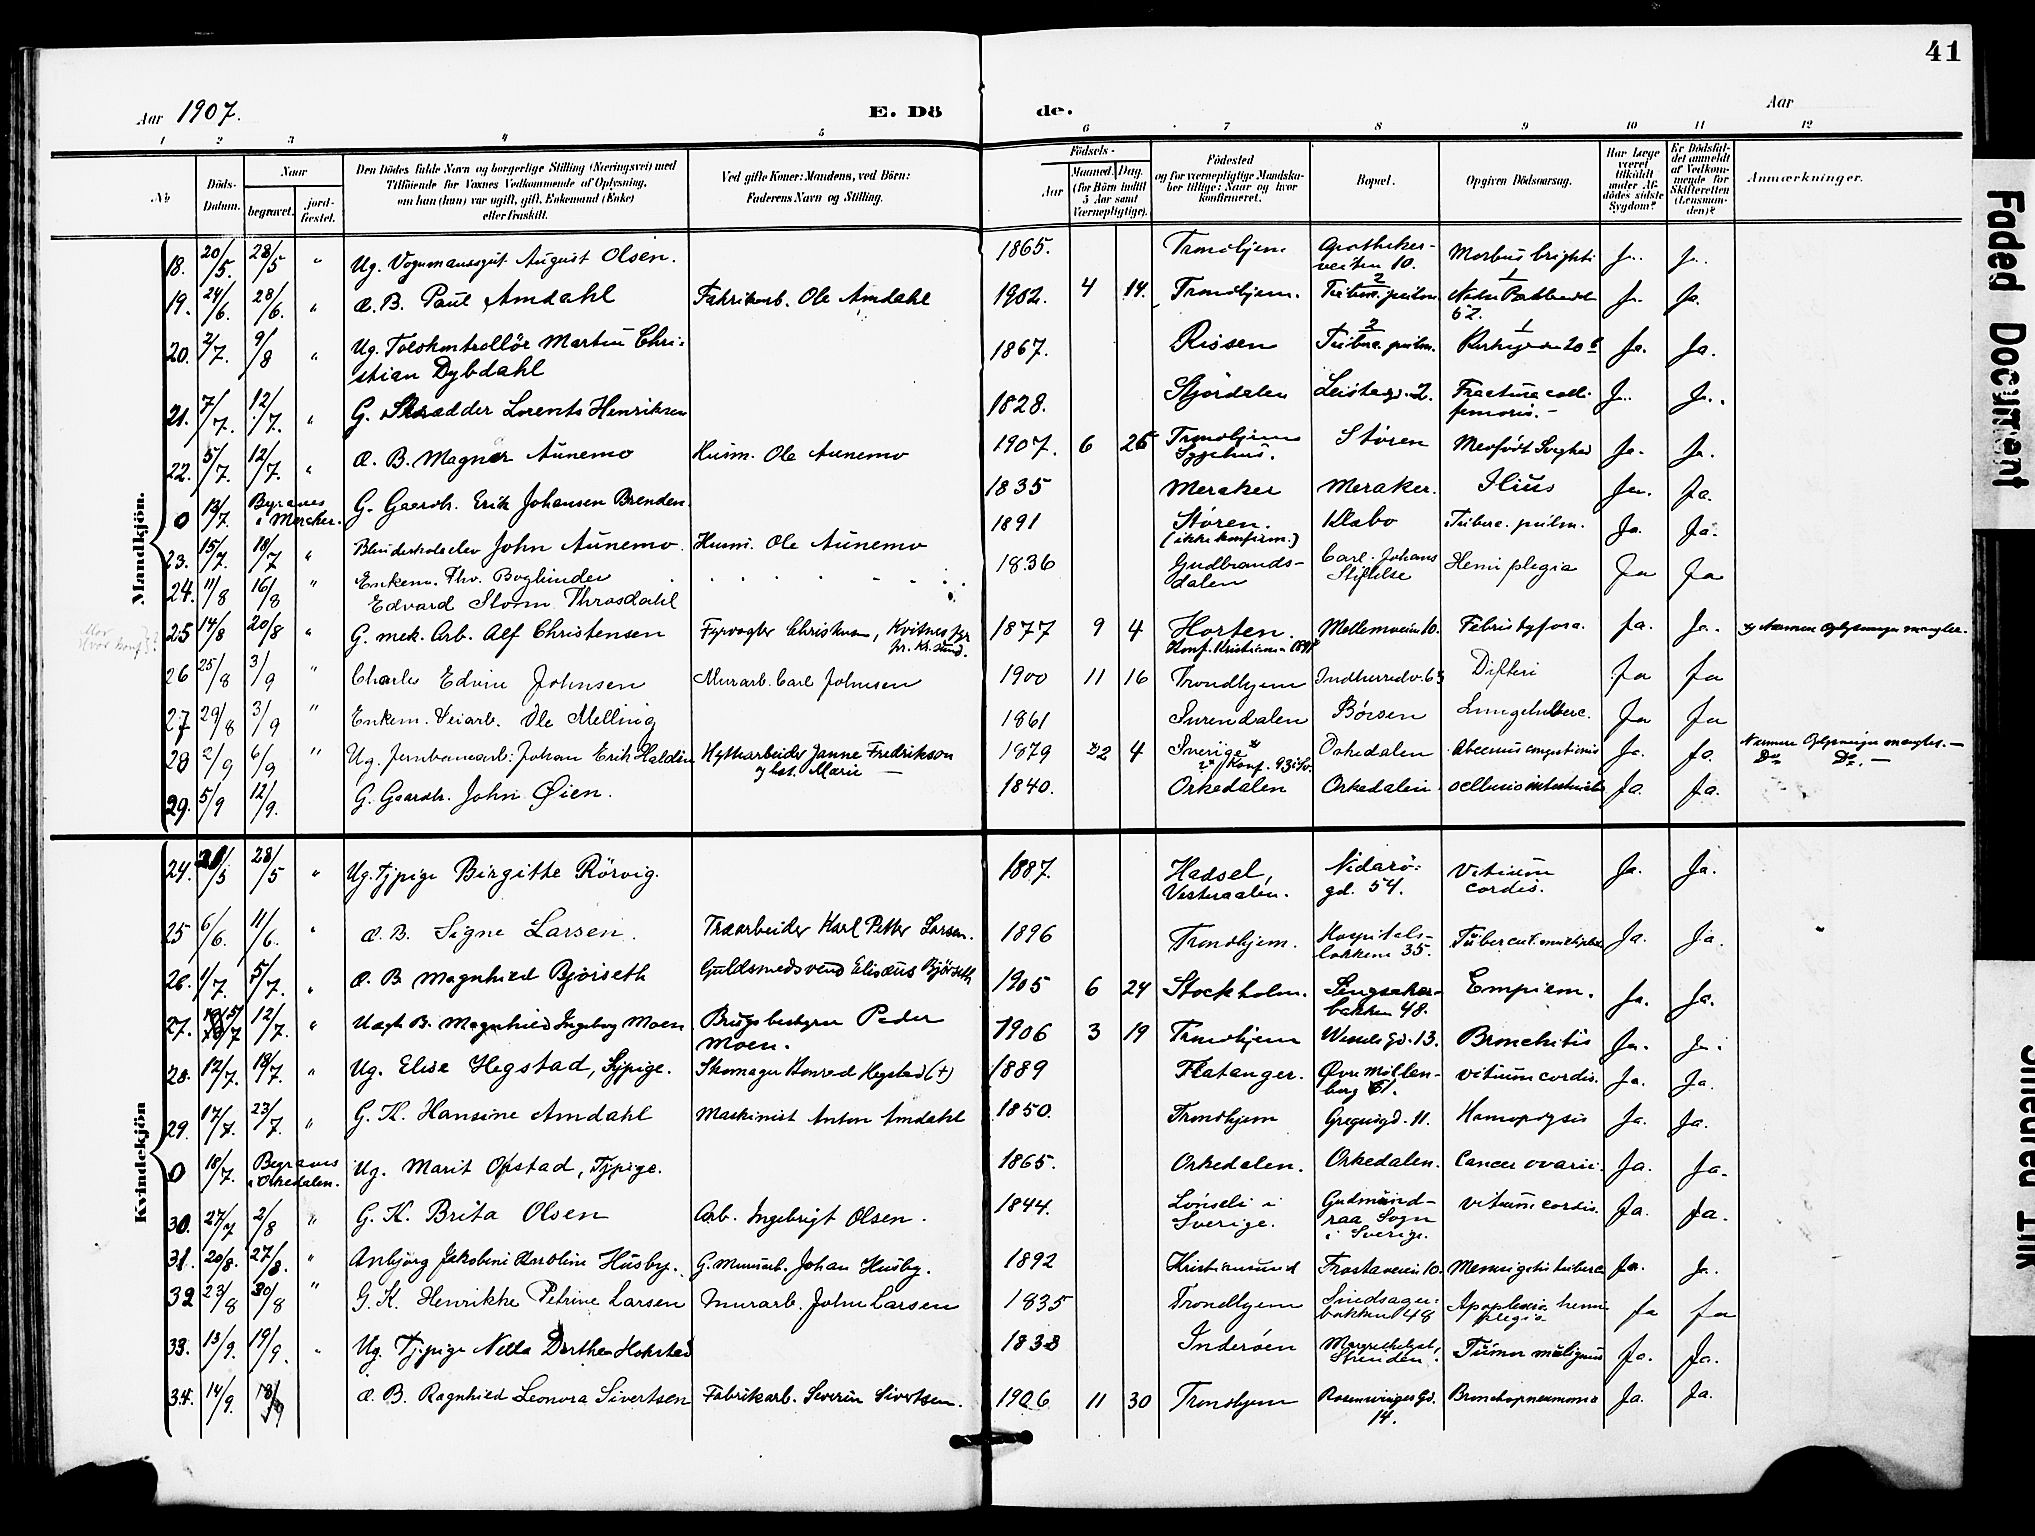 41
Aar 1907.
E. Dö de.
Aar
1 2 3 4 5 6 7 8 9 10 11 12
No
Döds-Datum.
Naar
begravet.
jord-fæstet.
Den Dödes fulde Navn og borgerlige Stilling (Næringsvei) med
Tilföiende for Voxnes Vedkommende af Oplysning,
om han (hun) var ugift, gift, Enkemand (Enke)
eller fraskilt.
Ved gifte Koner: Mandens, ved Börn:
Faderens Navn og Stilling.
Födsels-
Aar
Maaned. Dag.
(for Börn indtil
5 Aar samt
Værnepligtige).
Födested
og for værnepligtige Mandska-
ber tillige: Naar og hvor
konfirmeret.
Bopæl.
Opgiven Dödsaarsag.
Har Læge
været
tilkaldt
under Af-
dödes sidste
Sygdom?
Er Dödsfal-
det anmeldt
af Vedkom-
mende for
Skifteretten
(Lensman-
den)?
Anmærkninger.
Mandkjön.
18. 20/5. 28/5 " Ug. Vognmandsgut August Olsen. 1865. Trondhjem Apotheker-veiten 10. Morbus brighti Ja. Ja.
19. 24/6. 28/6. " Æ. B. Paul Amdahl Fabrikarb. Ole Amdahl 1902. 4 14. Trondhjem. 2 Tuberc. pulm. 1 Nedre Bakklandet 62. Ja. Ja.
20. 2/7. 9/8 " Ug. Toldkontrollör Martin Chri-
stian Dybdahl 1867. Rissen 2 Tuberc. pulm. 1 Ja. Ja.
21. 7/7. 12/7. " G. Skrædder Lorents Henriksen 1828. Stjördalen Leistadgd. 2. Fractura colli femoris. Ja. Ja.
22. 5/7. 12/7. " Æ. B. Magner Aunemo Husm. Ole Aunemo 1907. 6 25 Trondhjems Sygehus. Stören Medfödt Svaghed Ja. Ja.
0 13/7. Begraves i Meraker. G. Gaardb. Erik Johansen Brenden. 1835 Meraker Meraker. Ilius Ja. Ja.
23. 15/7. 18/7 " Blindeskoleelev John Aunemo. Husm. Ole Aunemo 1891 Stören. (ikke konfirm.) Klæbo Tuberc. pulm. Ja. Ja.
24. 11/8 16/8 " Enkem. Fhv. Bogbinder
Edvard Storm Throsdahl 1836 Gudbrands-dalen Carl Johans Stiftelse Hemiplegia Ja Ja
25 14/8 20/8 " G. mek. Arb. Alf Christensen Fyrvogter Christensen, Kvitnes fyr pr. Kr.sund. 1877 9 4 Horten. Konf. Kristiania Möllenveien 10. Febris tyfoidea. Ja. Ja. Nærmere Oplysninger mangler.
26 25/8 3/9 " Charles Edvin Johnsen Murarb. Carl Johnsen 1900 11 16 Trondhjem Indherredv. 63 Difteri Ja Ja
27 29/8 3/9 " Enkem. Veiarb. Ole Melling 1861 Surendalen Börsen Lungetuberc. Ja Ja
28 2/9 6/9 " Ug. Jernbanearb. Johan Erik Haldin Hyttearbeider Janne Fredrikson
og hst. Marie — 1879 22 4 Sverige Konf. 93 i Sv. Orkedalen Abcessus congestionis Ja. Ja. Nærmere Oplysninger mangler. —
Do Do. —
29. 5/9 12/9. G. Gaardb. John Øien. 1840. Orkedalen Orkedalen occlusio intestinal. Ja. Ja.
Kvindekjön
24. 21/5 28/5 " Ug. Tjpige Birgitte Rörvig. 1887. Hadsel, Vesteraalen. Nidarö-gd. 54. Vitium cordis. Ja. Ja.
25 6/6. 11/6. " Æ. B. Signe Larsen. Træarbeider Karl Petter Larsen. 1896 Trondhjem. Hospitals-lökken 35. Tubercul. multiplex Ja. Ja.
26. 1/7. 5/7. " Æ. B. Magnhild Björseth Guldsmedsvend Elisæus Björseth 1905 6 24 Stockholm. bakken 48. Empiem. Ja. Ja.
27. 12/7. " Uægte B. Magnhild Ingeborg Moen Brugsbestyrer Peder
Moen. 1906 3 19 Trondhjem Wessels Gd. 13. Bronchitis Ja. Ja.
28. 12/7. 18/7. " Ug. Elise Hegstad, Sypige. Skomager Konrad Hegstad (+) 1889 Flatanger. Øvre Möllen-berg 61. vitium cordis. Ja. Ja.
29. 17/7. 23/7. " G. K. Hansine Amdahl Maskinist Anton Amdahl 1850. Trondhjem Gregusgd. 11. Hæmoptysis Ja. Ja.
0 18/7. Begraves i Orkedalen. Ug. Marit Opstad, Tjpige. 1865. Orkedalen. Orkedalen. Cancer ovarii. Ja. Ja.
30. 27/7 2/8 " G. K. Brita Olsen Arb. Ingebrigt Olsen. 1844. i Sverige. Gudmund-raa Sogn i Sverige. vitium cordis. Ja. Ja.
31. 20/8. 27/8. " Anbjörg Jakobine Karoline Husby. G. Murarb. Johan Husby. 1892 Kristiansund Frostaveien 10. Meningitis tuberc. Ja. Ja.
32 23/8 30/8 " G. K. Henrikke Petrine Larsen Murarb. John Larsen 1835 Trondhjem bakken 48 Apoplexia hemi-plegia Ja Ja
33. 13/9. 19/9. " Ug. Tjpige Netta Dorthea Hokstad 1838 Inderöen Strinden. Tumor malignus Ja. Ja.
34. 14/9. 18/9 Æ. B. Ragnhild Leonora Sivertsen Fabrikarb. Severin Sivertsen. 1906 11 30 Trondhjem Rosenvinges Gd. 14. Bronchopneumonia Ja. Ja.
Faded Document
Smeared Ink